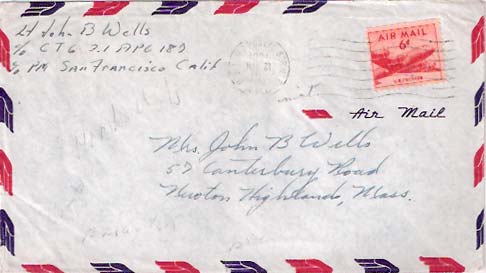 Lt John B Wells
c/o CTG 7.1 APO 187
c/o PM San Francisco Calif
AIR MAIL
6¢
U.S. POSTAGE
Air Mail
Mrs. John B Wells
57 Canterbury Road
Newton Highlands, Mass.